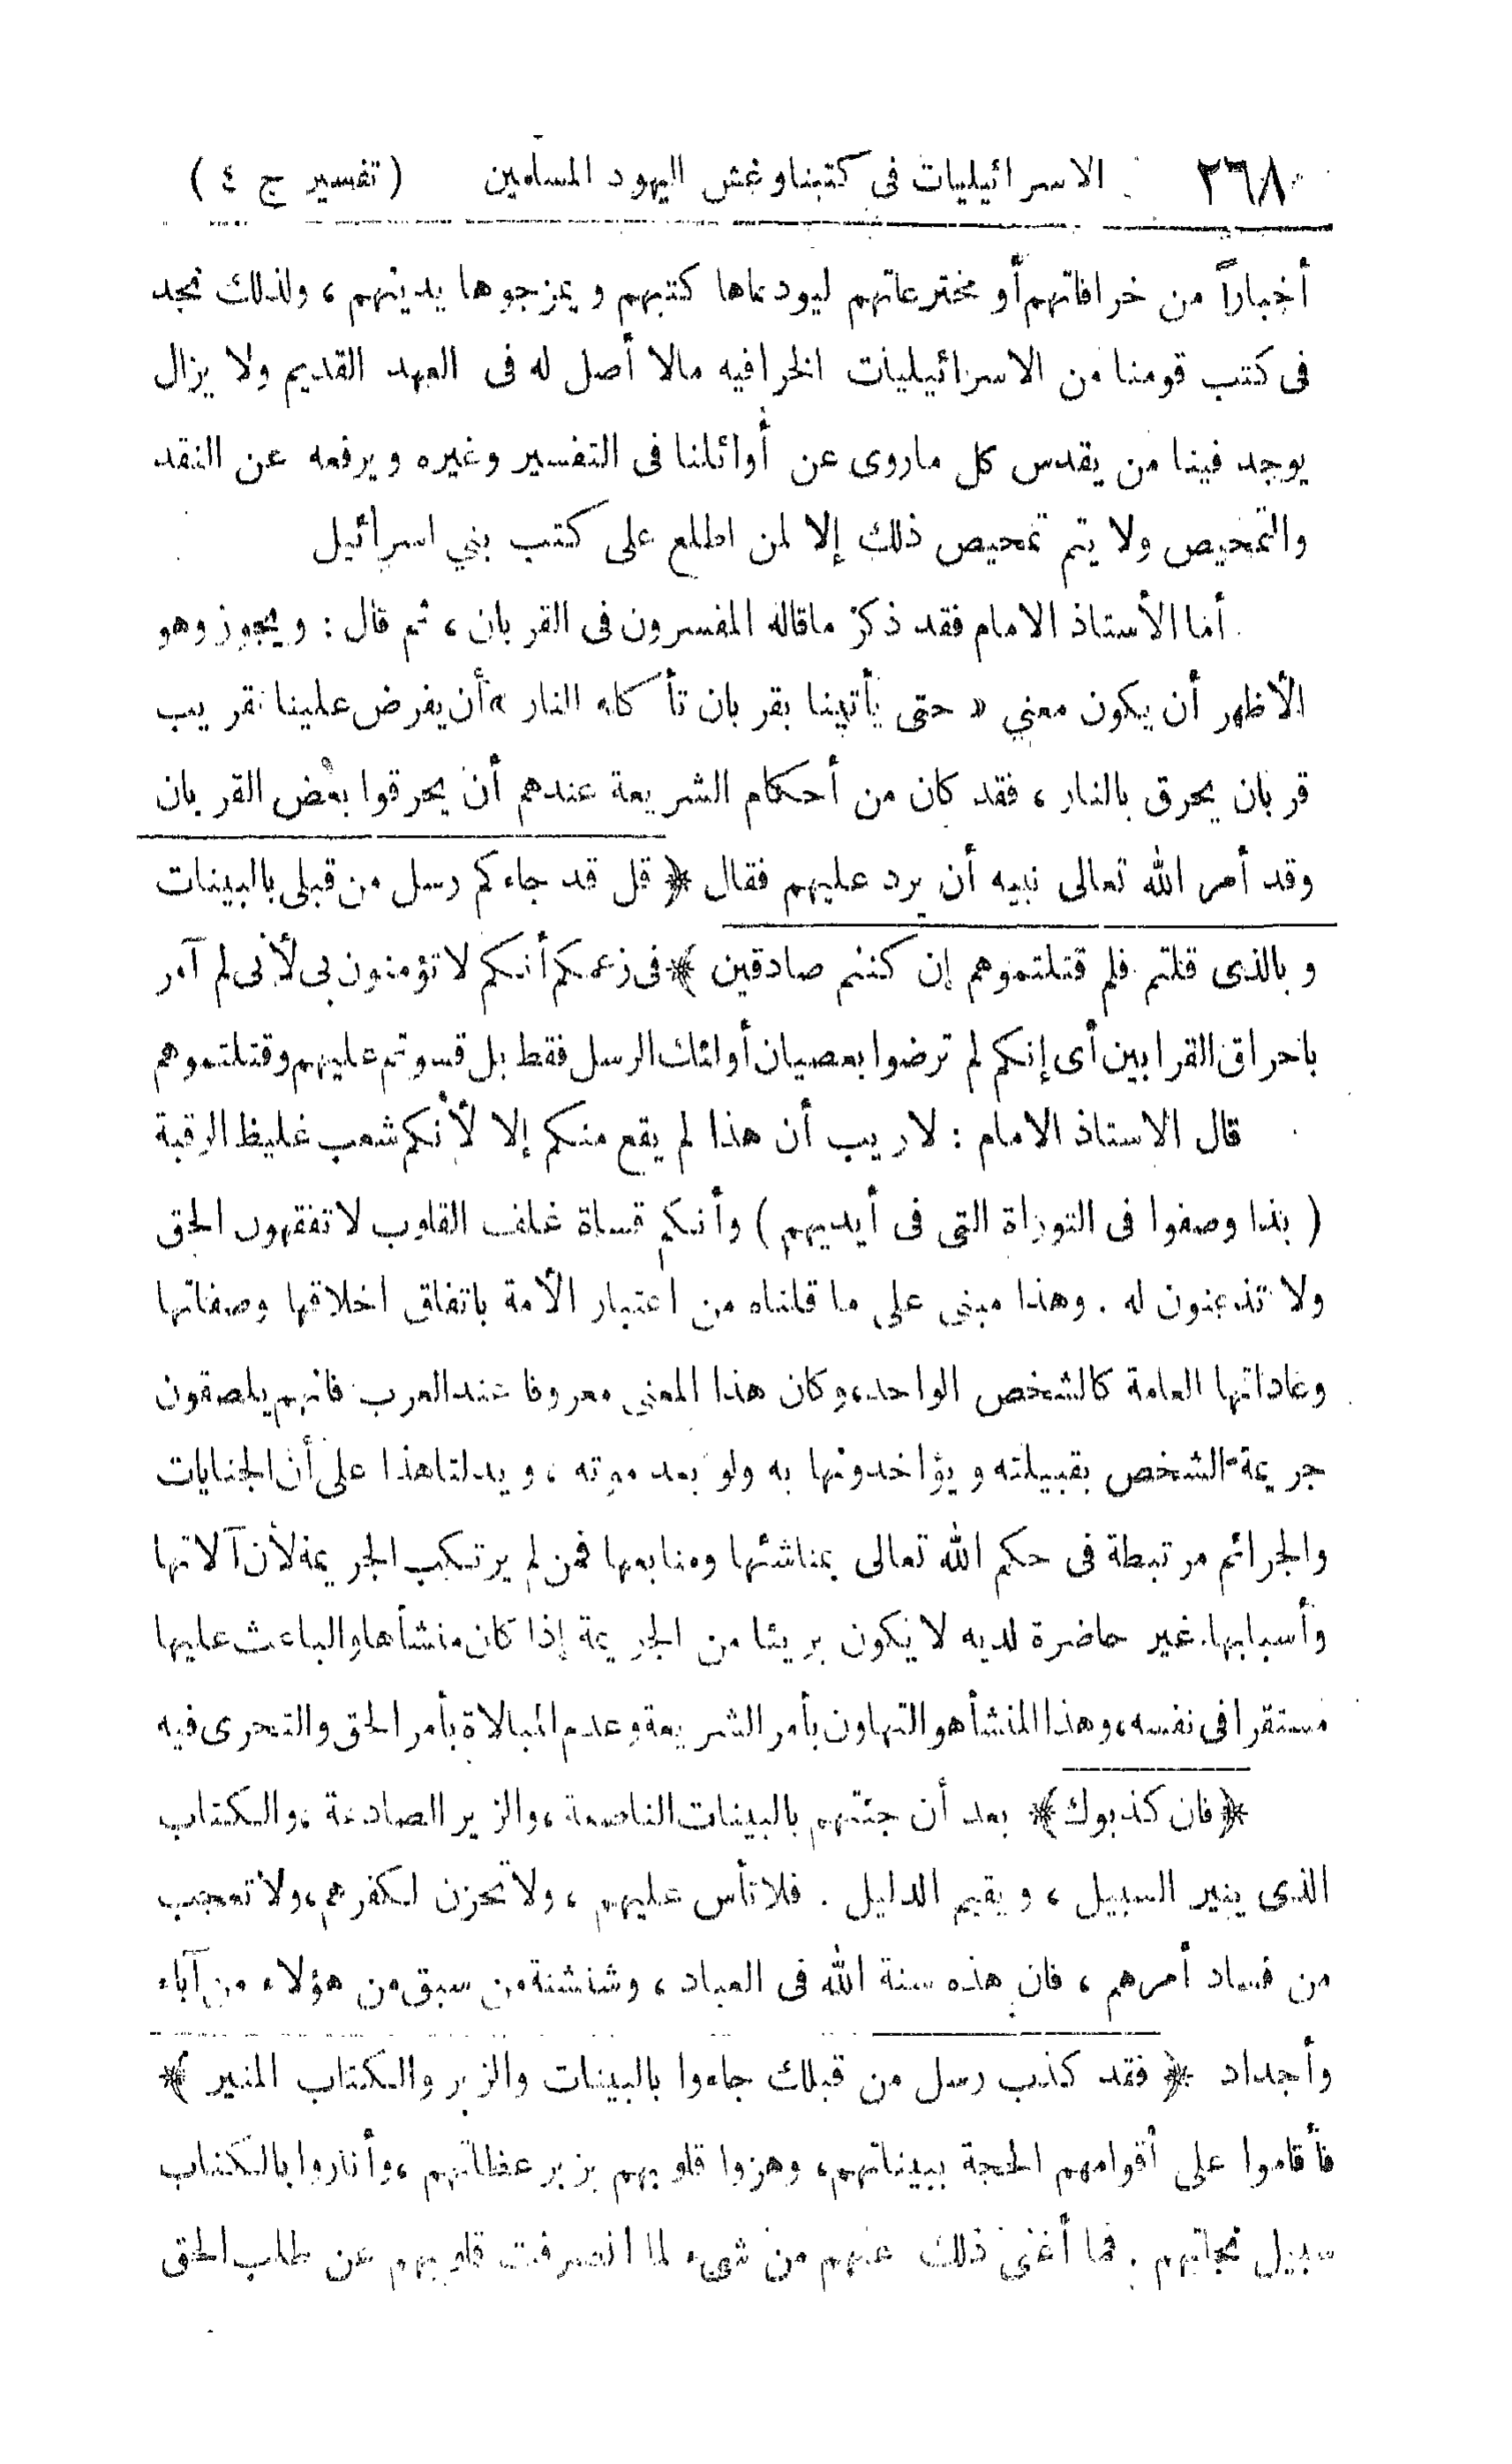 ٢٦٨ الاسرائيليات فى كتبنا وغش اليهود المسلمين (تفسير ج ٤)
أخباراً من خرافاتهم أو مخترعاتهم ليودعاها كتبهم ويمزجوها بدينهم، ولذلك نجد
فى كتب قومنا من الاسرائيليات الخرافيه مالا أصل له فى العهد القديم ولا يزال
يوجد فينا من يقدس كل ماروى عن أوائلنا فى التفسير وغيره ويرفعه عن النقد
والتمحيص ولا يتم تمحيص ذلك إلا لمن اطلع على كتب بني اسرائيل
أما الأستاذ الامام فقد ذكر ماقاله المفسرون فى القربان، ثم قال: ويجوز وهو
الأظهر أن يكون معني « حتى يأتينا بقربان تأكله النار » أن يفرض علينا تقريب
قربان يحرق بالنار، فقد كان من أحكام الشريعة عندهم أن يحرقوا بعض القربان
وقد أمر الله تعالى نبيه أن يرد عليهم فقال ﴿ قل قد جاءكم رسل من قبلى بالبينات
وبالذى قلتم فلم قتلتموهم إن كنتم صادقين ﴾ فى زعمكم أنكم لا تؤمنون بى لأنى لم آمر
باحراق القرابين أى إنكم لم ترضوا بعصيان أولئك الرسل فقط بل قسوتم عليهم وقتلتموهم
قال الاستاذ الامام: لاريب أن هذا لم يقع منكم إلا لأنكم شعب غليظ الرقبة
( بذا وصفوا فى التوراة التى فى أيديهم ) وأنكم قساة غلف القلوب لا تفقهون الحق
ولا تذعنون له . وهذا مبنى على ما قلناه من اعتبار الأمة باتفاق اخلاقها وصفاتها
وعاداتها العامة كالشخص الواحد، وكان هذا المعنى معروفا عند العرب فانهم يلصقون
جريمة الشخص بقبيلته ويؤاخذونها به ولو بعد موته، ويدلنا هذا على أن الجنايات
والجرائم مرتبطة فى حكم الله تعالى بمناشئها ومنابعها فمن لم يرتكب الجريمة لأن آلاتها
وأسبابها غير حاضرة لديه لا يكون بريئا من الجريمة إذا كان منشأها والباعث عليها
مستقرا فى نفسه، وهذا المنشأ هو التهاون بأمر الشريعة وعدم المبالاة بأمر الحق والتحرى فيه
﴿ فان كذبوك ﴾ بعد أن جئتهم بالبينات الناصعة، والزبر الصادعة، والكتاب
الذى ينير السبيل، ويقيم الدليل . فلا تأس عليهم، ولا تحزن لكفرهم، ولا تعجب
من فساد أمرهم، فان هذه سنة الله فى العباد، وشنشنة من سبق من هؤلاء من آباء
وأجداد ﴿ فقد كذب رسل من قبلك جاءوا بالبينات والزبر والكتاب المنير ﴾
فأقاموا على أقوامهم الحجة ببيناتهم، وهزوا قلوبهم بزبر عظاتهم، وأناروا بالكتاب
سبيل نجاتهم . فما أغنى ذلك عنهم من شىء لما انصرفت قلوبهم عن طلب الحق